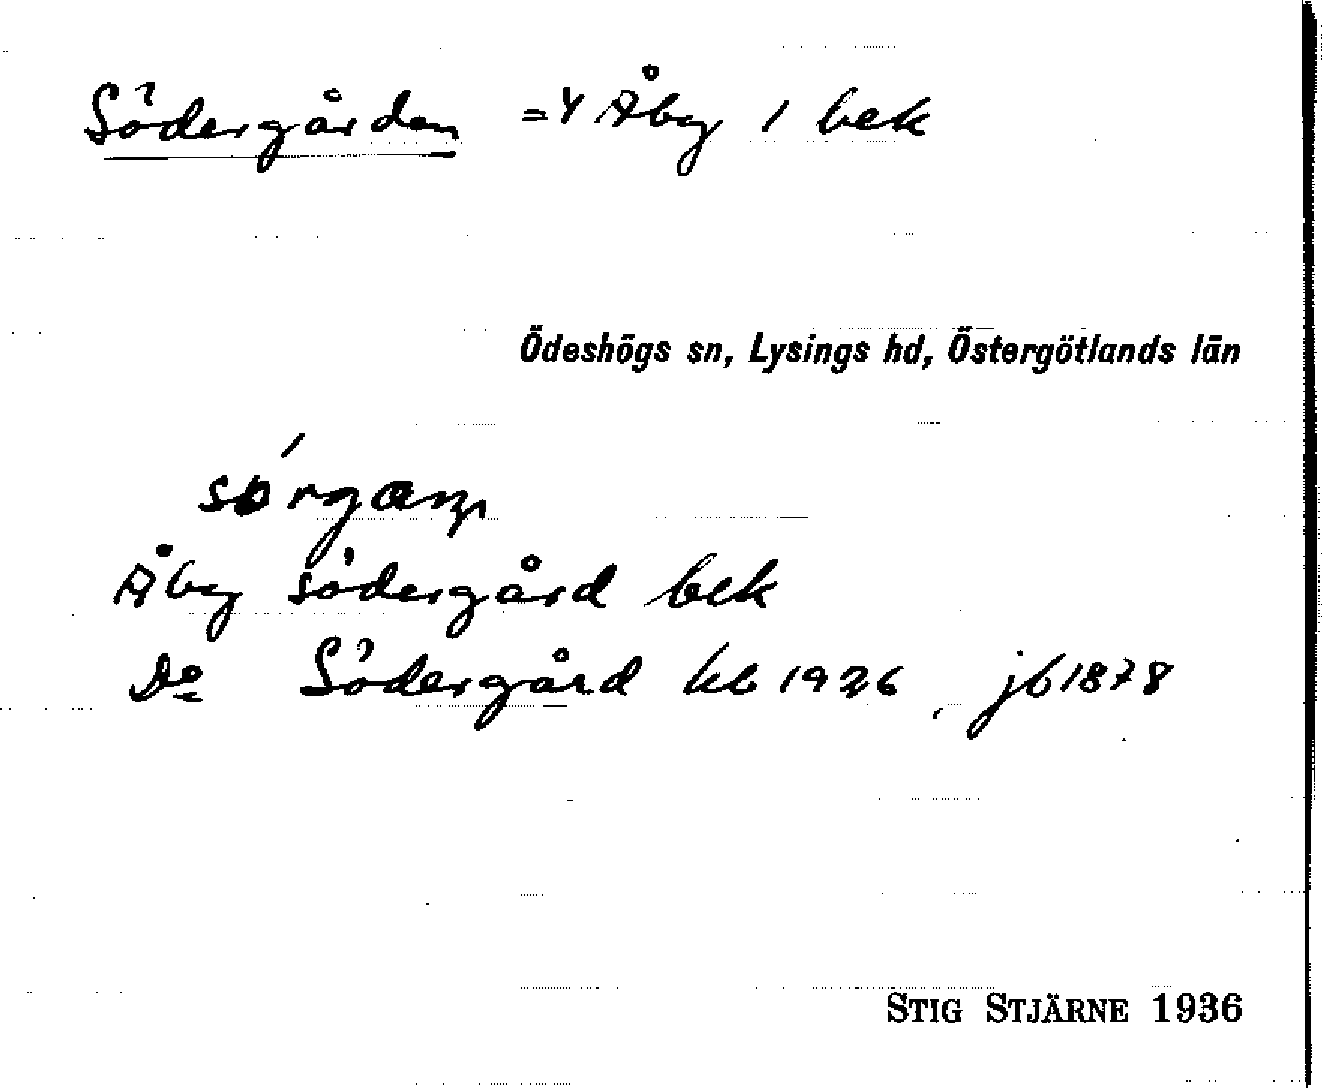 Södergården = Y Åby 1 bek
Ödeshögs sn, Lysings hd, Östergötlands län
Åby södergård bek
Do Södergård kb 1926, jb 1878
STIG STJÄRNE 1936